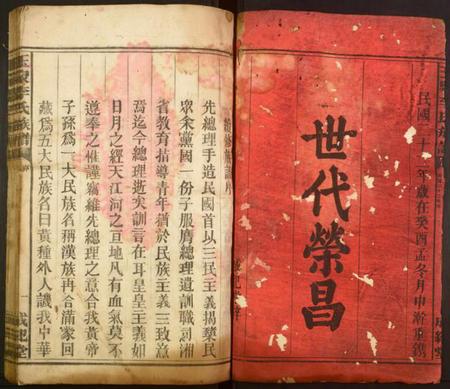 民國二十二年歲在癸酉孟冬月中澣重鐫
世代榮昌
成紀堂
續修族譜序
先總理手造民國首以三民主義揚槩民
眾余黨國一份子服膺總理遺訓職司湘
省教育指導青年猶於民族主義三致意
焉迄今總理逝矣訓言在耳皇皇主義如
日月之經天江河之亘地凡有血氣莫不
遵奉之惟謹竊維先總理之意合我黃帝
子孫為一大民族名稱漢族再合滿蒙回
藏為五大民族名曰黃種外人譏我中華
李氏族譜
序
一
成紀堂